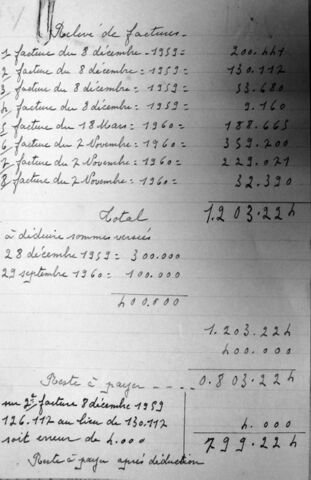 Relevé de factures -
1 facture du 8 décembre - 1959 = 200.441
2 facture du 8 décembre = 1959 = 130.117
3 facture du 8 décembre = 1959 = 53.680
4 facture du 8 décembre = 1959 = 9.160
5 facture du 18 Mars = 1960 = 188.665
6 facture du 7 Novembre = 1960 = 359.700
7 facture du 7 Novembre = 1960 = 229.071
8 facture du 7 Novembre = 1960 = 32.390
Total 1.203.224
à déduire sommes versées
28 décembre 1959 = 300.000
29 septembre 1960 = 100.000
400.000
1.203.224
400.000
Reste à payer - - - - 0.803.224
sur 2e facture 8 décembre 1959
126.117 au lieu de 130.117
soit erreur de 4.000 4.000
799.224
Reste à payer après déduction